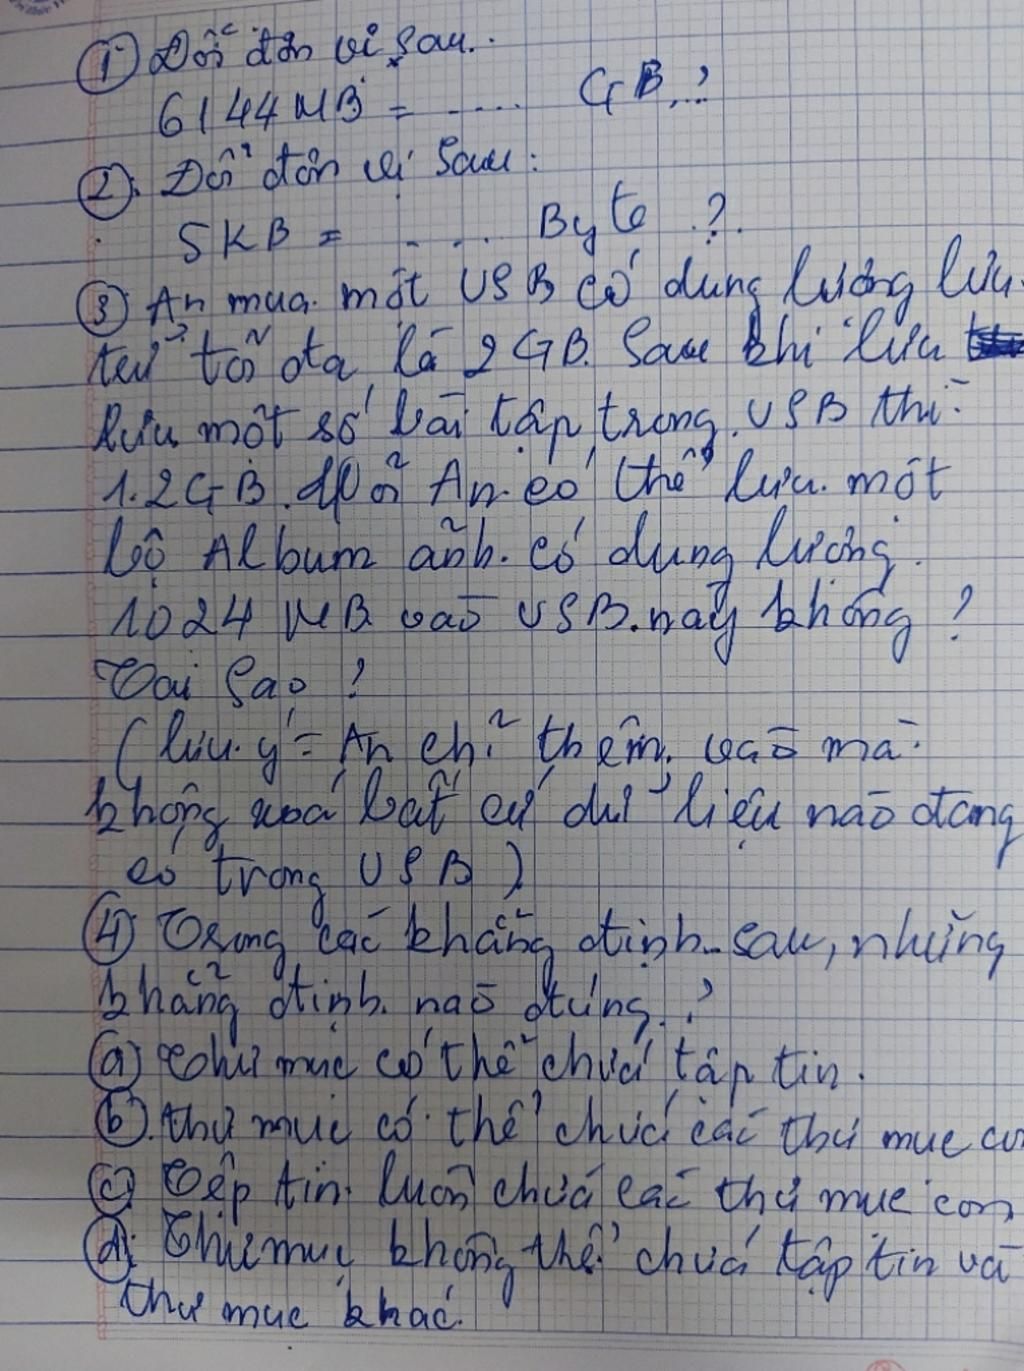 ① Đổi đơn vị sau:
6144 MB = ..... GB.?
②. Đổi đơn vị sau:
5KB = ..... Byte ?
③ An mua một USB có dung lượng lưu
trữ tối đa là 2GB. Sau khi lưu
lưu một số bài tập trong USB thì
1.2GB. Hỏi An có thể lưu một
bộ Album ảnh có dung lượng
1024 MB vào USB này không ?
Tại sao ?
(lưu ý = An chỉ thêm vào mà
không xoá bất cứ dữ liệu nào đang
có trong USB)
④ Trong các khẳng định sau, những
khẳng định nào đúng.?
ⓐ Thư mục có thể chứa tập tin.
ⓑ. thư mục có thể chứa các thư mục co
ⓒ Tệp tin luôn chứa các thư mục con
ⓓ. Thư mục không thể chứa tập tin và
thư mục khác.